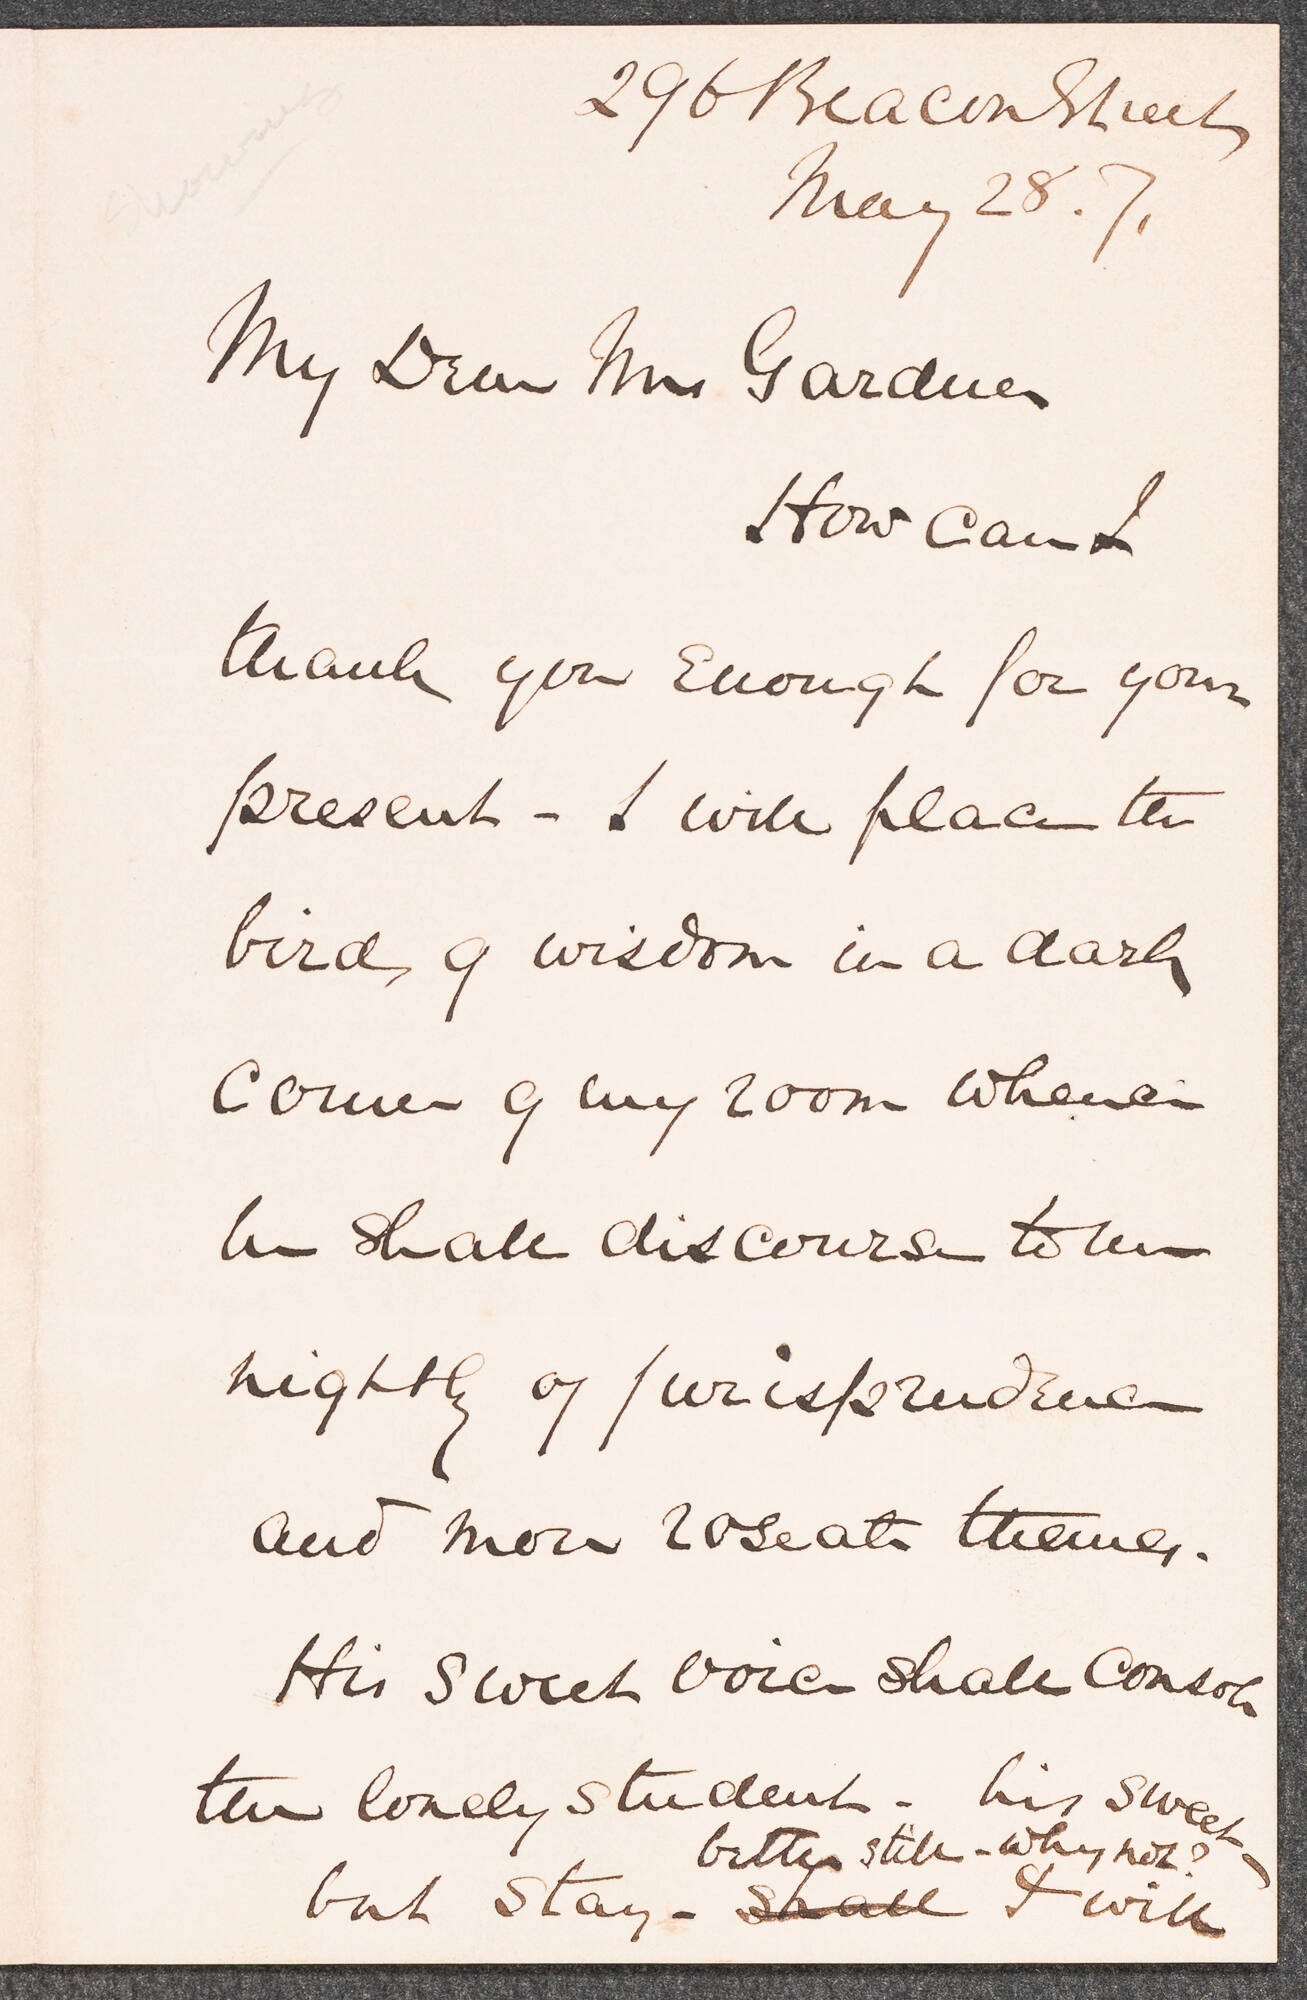 296 Beacon Street,
May 28. 7.
My Dear Mrs Gardner
How can I
thank you Enough for your
present - I will place the
bird, of wisdom in a dark
corner of my room whence
he shall discourse to me
nightly of jurisprudence
and more roseate themes.
His sweet voice shall console
the lonely student - his sweet -
better still - why not?
but stay - shall I will